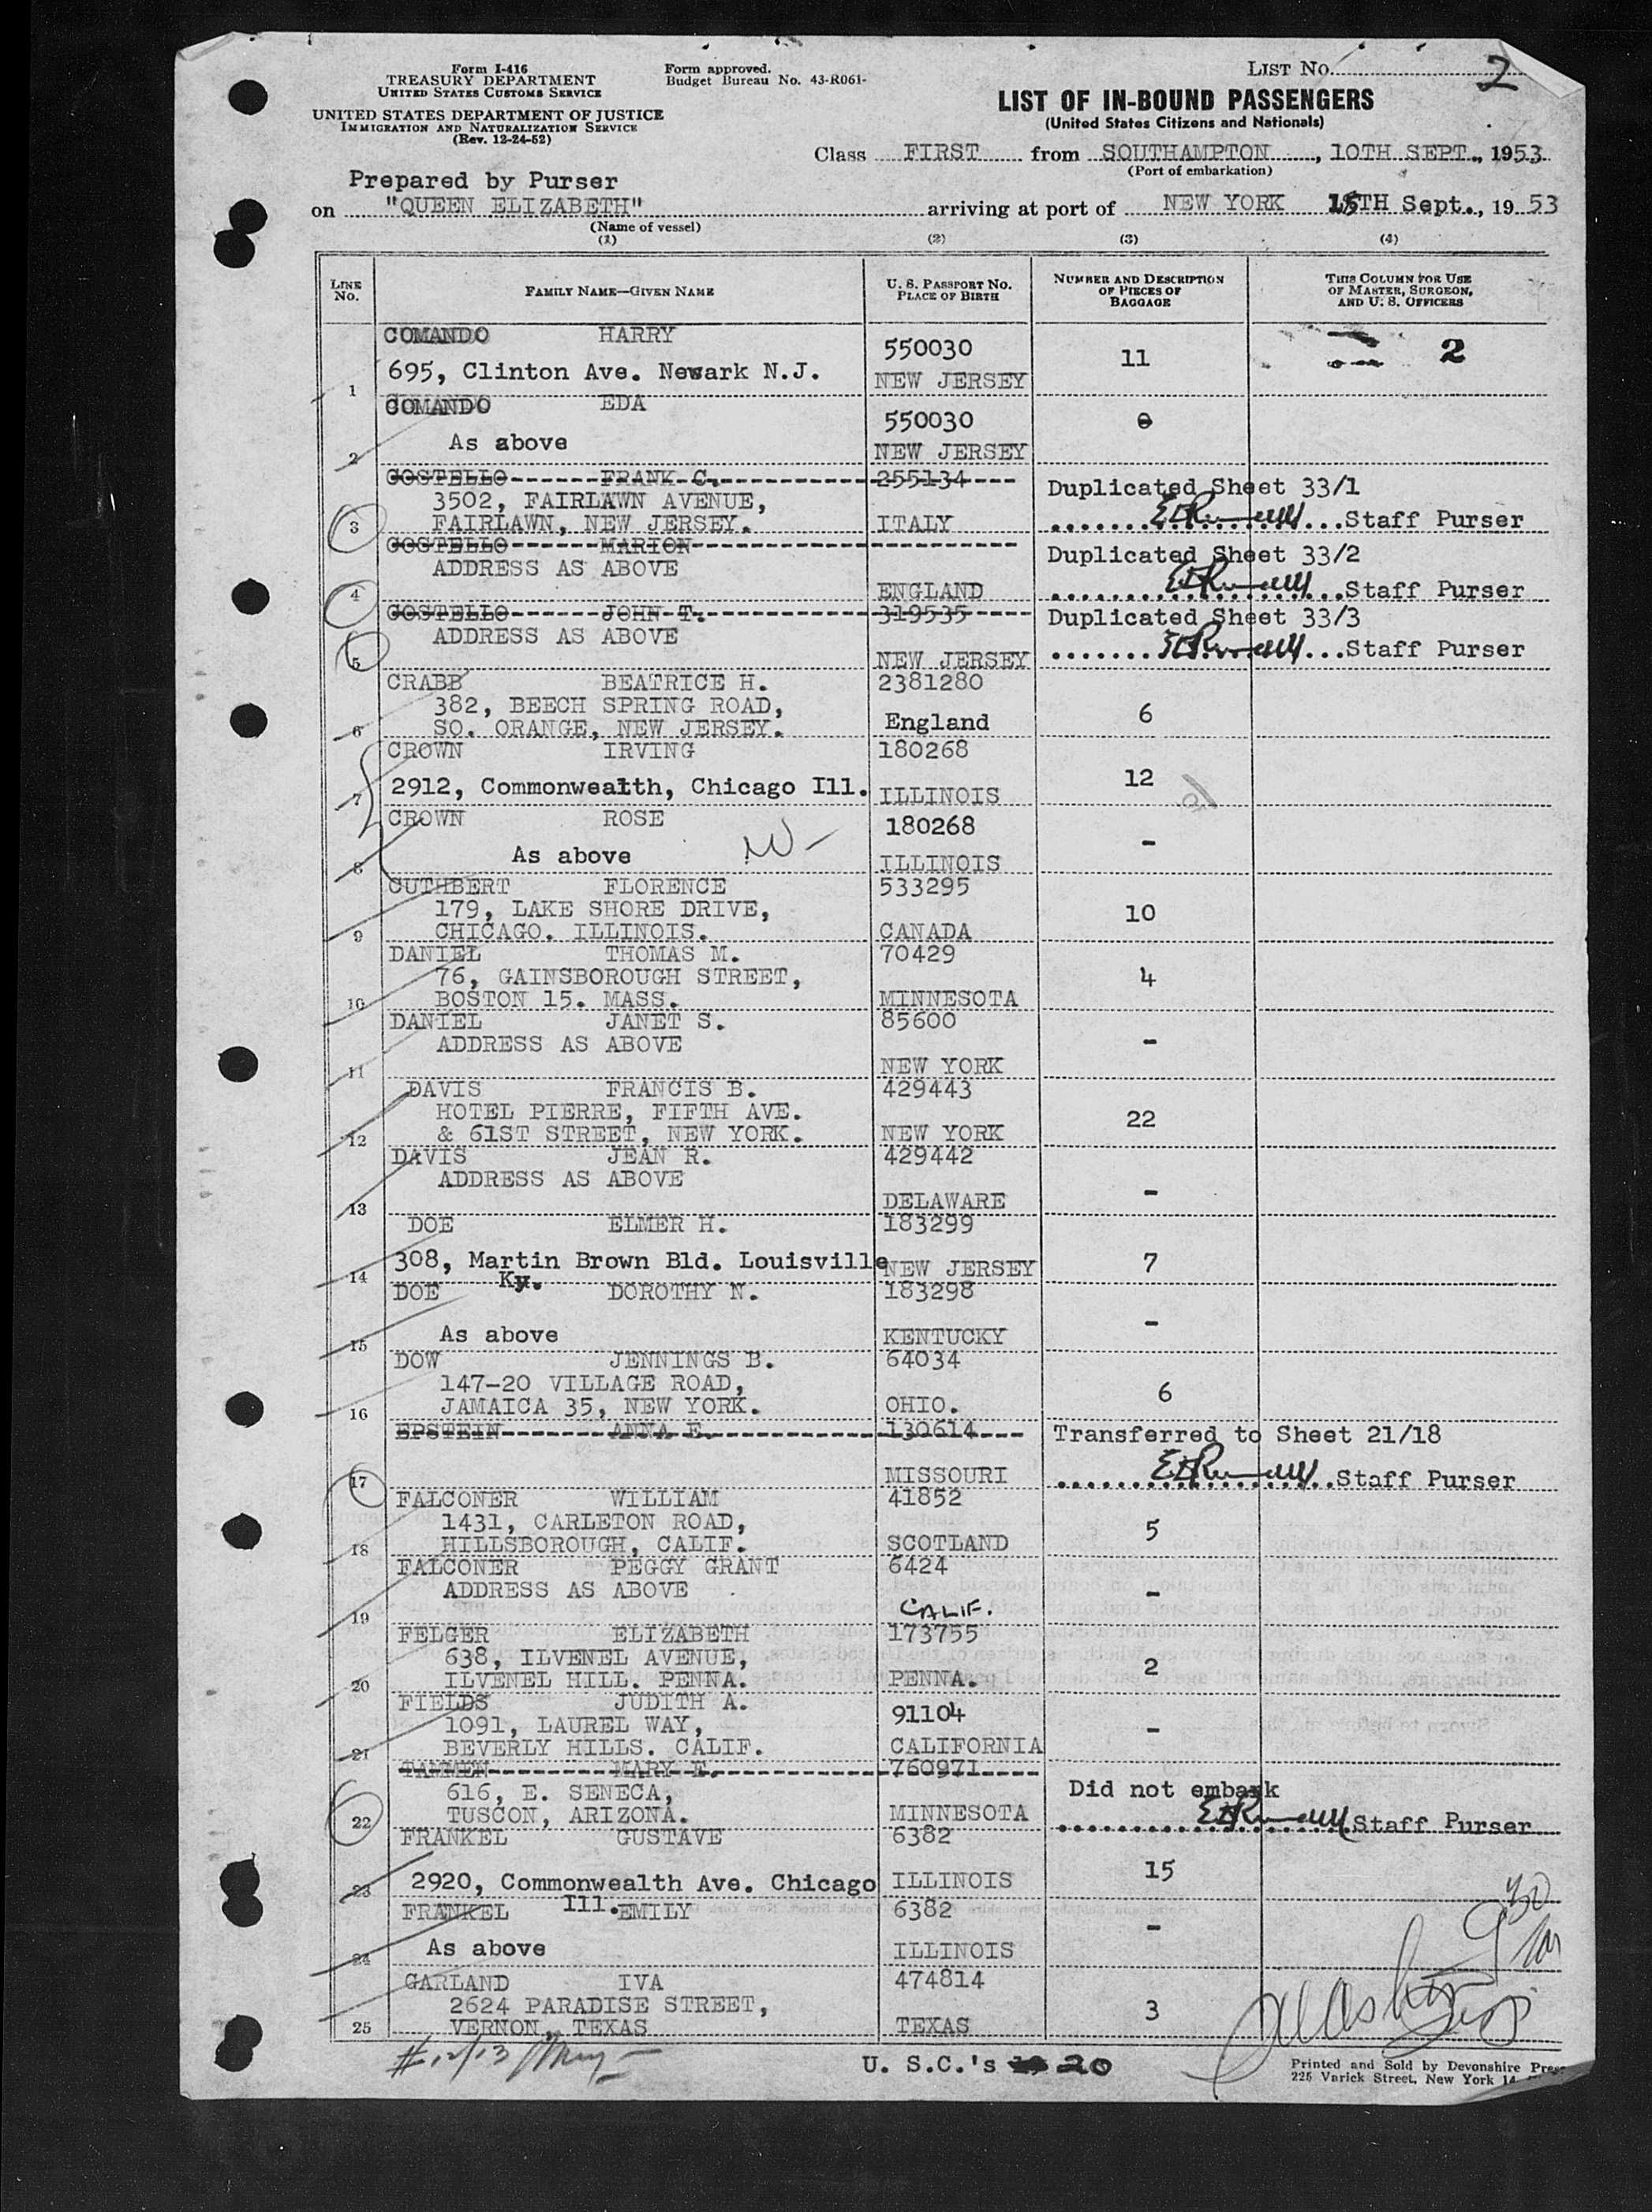 Form I-416
TREASURY DEPARTMENT
UNITED STATES CUSTOMS SERVICE
UNITED STATES DEPARTMENT OF JUSTICE
IMMIGRATION AND NATURALIZATION SERVICE
(Rev. 12-24-52)
Form approved.
Budget Bureau No. 43-R061-
LIST No. 2
LIST OF IN-BOUND PASSENGERS
(United States Citizens and Nationals)
Class FIRST from SOUTHAMPTON, 10TH SEPT., 1953
(Port of embarkation)
Prepared by Purser
on "QUEEN ELIZABETH" arriving at port of NEW YORK 15TH Sept., 1953
(Name of vessel)
(1) (2) (3) (4)
LINE No. FAMILY NAME—GIVEN NAME U. S. PASSPORT NO. PLACE OF BIRTH NUMBER AND DESCRIPTION OF PIECES OF BAGGAGE THIS COLUMN FOR USE OF MASTER, SURGEON, AND U. S. OFFICERS
COMANDO HARRY 550030 11 2
1 695, Clinton Ave. Newark N.J. NEW JERSEY
COMANDO EDA 550030
2 As above NEW JERSEY
COSTELLO FRANK C. 255134 Duplicated Sheet 33/1
3502, FAIRLAWN AVENUE,
3 FAIRLAWN, NEW JERSEY. ITALY Staff Purser
COSTELLO MARION Duplicated Sheet 33/2
ADDRESS AS ABOVE
4 ENGLAND Staff Purser
COSTELLO JOHN T. 319535 Duplicated Sheet 33/3
ADDRESS AS ABOVE
5 NEW JERSEY Staff Purser
CRABB BEATRICE H. 2381280
382, BEECH SPRING ROAD, 6
6 SO. ORANGE, NEW JERSEY. England
CROWN IRVING 180268
7 2912, Commonwealth, Chicago Ill. ILLINOIS 12
CROWN ROSE 180268 -
8 As above ILLINOIS
CUTHBERT FLORENCE 533295
179, LAKE SHORE DRIVE, 10
9 CHICAGO. ILLINOIS. CANADA
DANIEL THOMAS M. 70429
76, GAINSBOROUGH STREET, 4
10 BOSTON 15. MASS. MINNESOTA
DANIEL JANET S. 85600
ADDRESS AS ABOVE -
11 NEW YORK
DAVIS FRANCIS B. 429443
HOTEL PIERRE, FIFTH AVE. 22
12 & 61ST STREET, NEW YORK. NEW YORK
DAVIS JEAN R. 429442
ADDRESS AS ABOVE -
13 DELAWARE
DOE ELMER H. 183299
14 308, Martin Brown Bld. Louisville NEW JERSEY 7
Ky.
DOE DOROTHY N. 183298 -
15 As above KENTUCKY
DOW JENNINGS B. 64034
147-20 VILLAGE ROAD, 6
16 JAMAICA 35, NEW YORK. OHIO.
EPSTEIN ANNA E. 130614 Transferred to Sheet 21/18
17 MISSOURI Staff Purser
FALCONER WILLIAM 41852
1431, CARLETON ROAD, 5
18 HILLSBOROUGH, CALIF. SCOTLAND
FALCONER PEGGY GRANT 6424
ADDRESS AS ABOVE -
19 CALIF.
FELGER ELIZABETH 173755
638, ILVENEL AVENUE, 2
20 ILVENEL HILL. PENNA. PENNA.
FIELDS JUDITH A. 91104
1091, LAUREL WAY, -
21 BEVERLY HILLS. CALIF. CALIFORNIA
TAMMEN MARY E. 760971
616, E. SENECA, Did not embark
22 TUSCON, ARIZONA. MINNESOTA Staff Purser
FRANKEL GUSTAVE 6382
23 2920, Commonwealth Ave. Chicago ILLINOIS 15
Ill.
FRANKEL EMILY 6382 -
24 As above ILLINOIS
GARLAND IVA 474814
2624 PARADISE STREET, 3
25 VERNON, TEXAS TEXAS
U. S.C.'s 20
Printed and Sold by Devonshire
225 Varick Street, New York 14